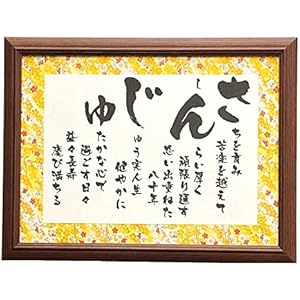 さちを育み
苦楽を越えて
しんらい厚く
頑張り通す
思い出重ねた
八十年
じゅう実人生
健やかに
ゆたかな心で
過ごす日々
益々長寿
慶び満ちる